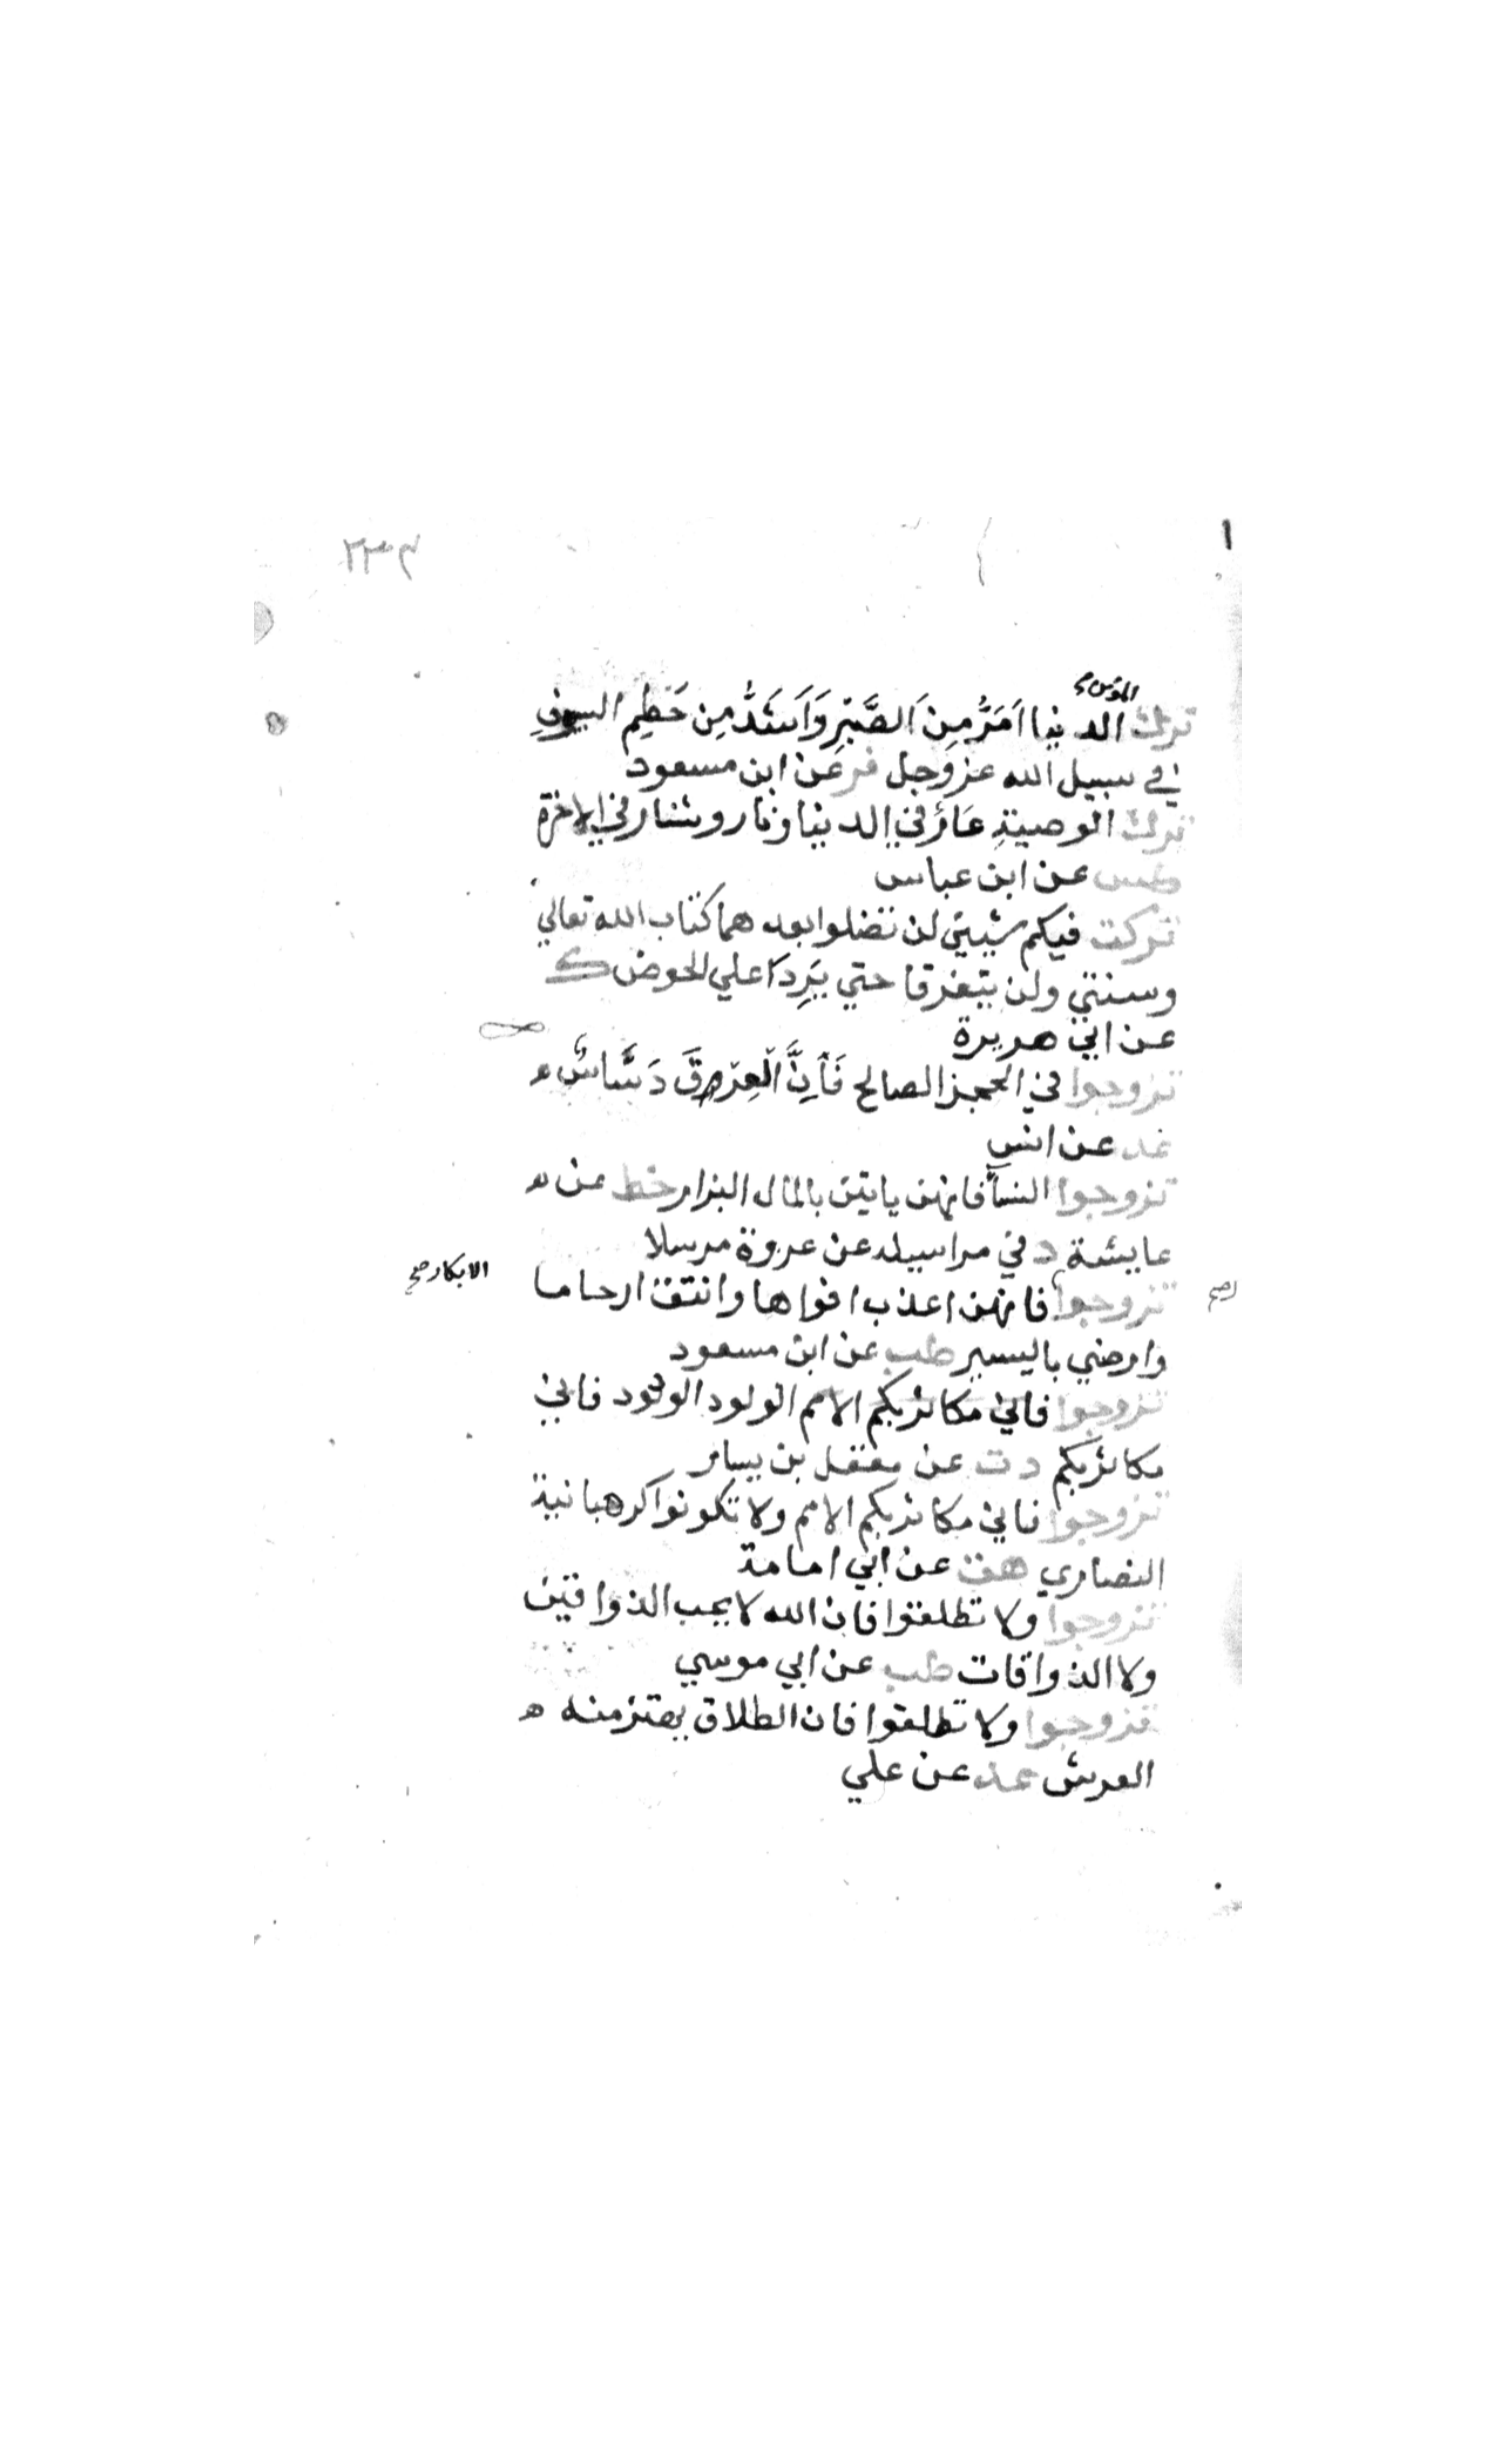 ٢٣٤
المؤمن
ترك الدنيا اَمَرُّ مِنَ الصَّبْرِ وَاَشَدُّ مِن حَطِم السيوفِ
في سبيل الله عز وجل فر عن ابن مسعود
ترك الوصيةِ عَارٌ في الدنيا ونار وشنار في الاخرة
طس عن ابن عباس
تركت فيكم شيئين لن تضلوا بعدهما كتاب الله تعالي
وسنتي ولن يتفرقا حتي يَرِدَا علي الحوض ك
عن ابي هريرة
تزوجوا في الحجز الصالح فَاِنَّ الْعِرْقَ دَسَّاسٌ
عد عن انس
تزوجوا النسآ فانهن ياتين بالمال البزار خط عن
عايشة د في مراسيله عن عروة مرسلا
تزوجوا فانهن اعذب افواها وانتق ارحاما
الابكار صح
وارضي باليسير طب عن ابن مسعود
تزوجوا فاني مكاثر بكم الامم الولود الودود فاني
مكاثر بكم د ن عن معقل بن يسار
تزوجوا فاني مكاثر بكم الامم ولا تكونوا كرهبانية
النصاري هق عن ابي امامة
تزوجوا ولا تطلقوا فان الله لا يحب الذواقين
ولا الذواقات طب عن ابي موسي
تزوجوا ولا تطلقوا فان الطلاق يهتز منه
العرش عد عن علي